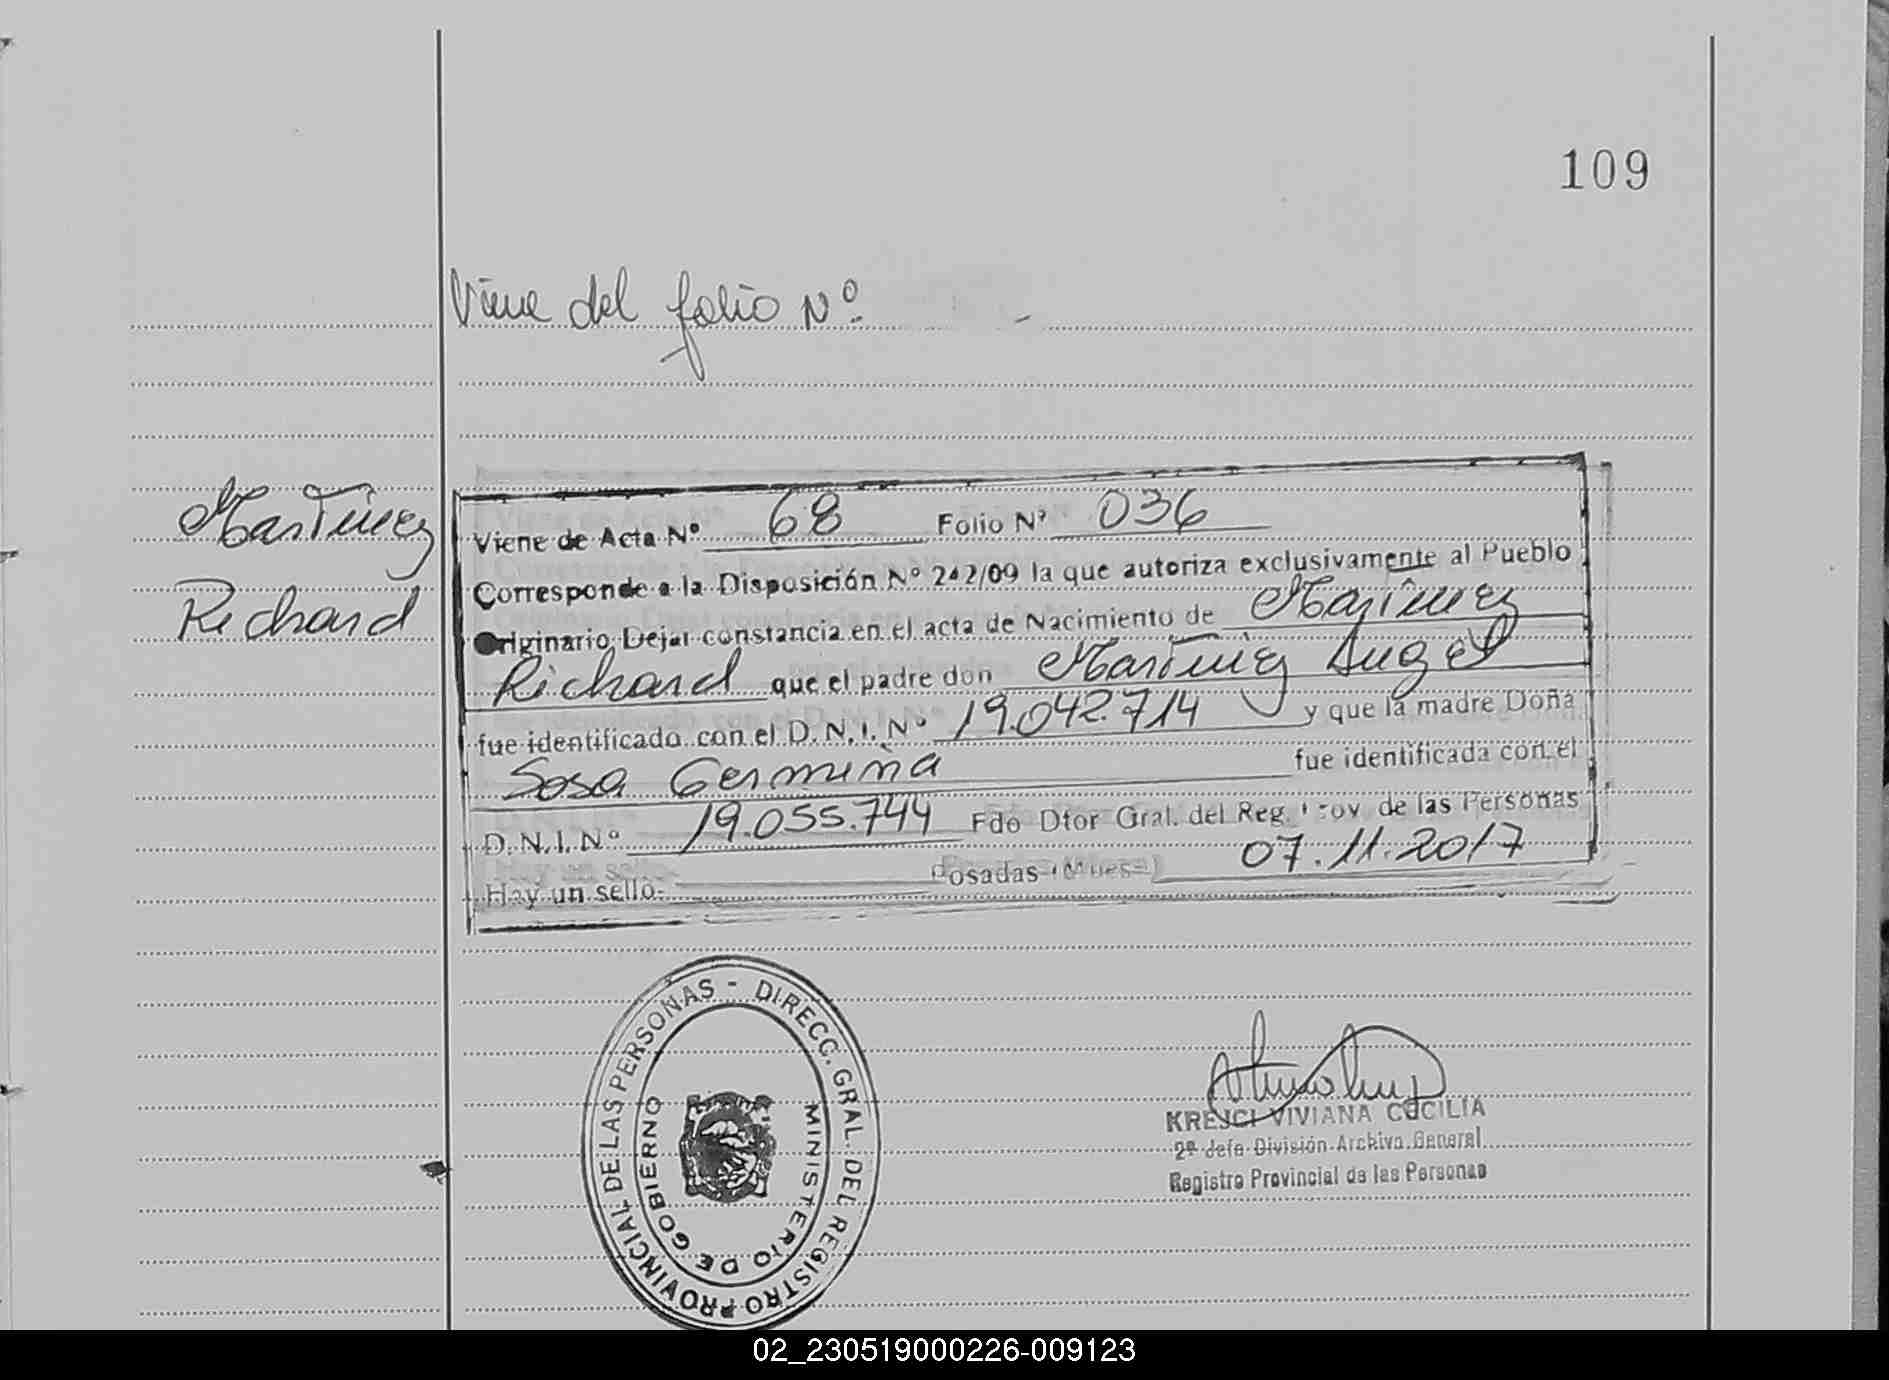 109
Viene del folio Nº
Martinez
Richard
Viene de Acta Nº 68 Folio Nº 036
Corresponde a la Disposición Nº 242/09 la que autoriza exclusivamente al Pueblo
Originario Dejar constancia en el acta de Nacimiento de Martinez
Richard que el padre don Martinez Angel
fue identificado con el D.N.I. Nº 19.042.714 y que la madre Doña
Sosa Germina fue identificada con el
D.N.I. Nº 19.055.744 Fdo Dtor Gral. del Reg. Prov. de las Personas
Hay un sello. Posadas (Mnes) 07.11.2017
DIRECC. GRAL. DEL REGISTRO PROVINCIAL DE LAS PERSONAS -
MINISTERIO DE GOBIERNO
KREJCI VIVIANA CECILIA
2º Jefe División Archivo General
Registro Provincial de las Personas
02_230519000226-009123